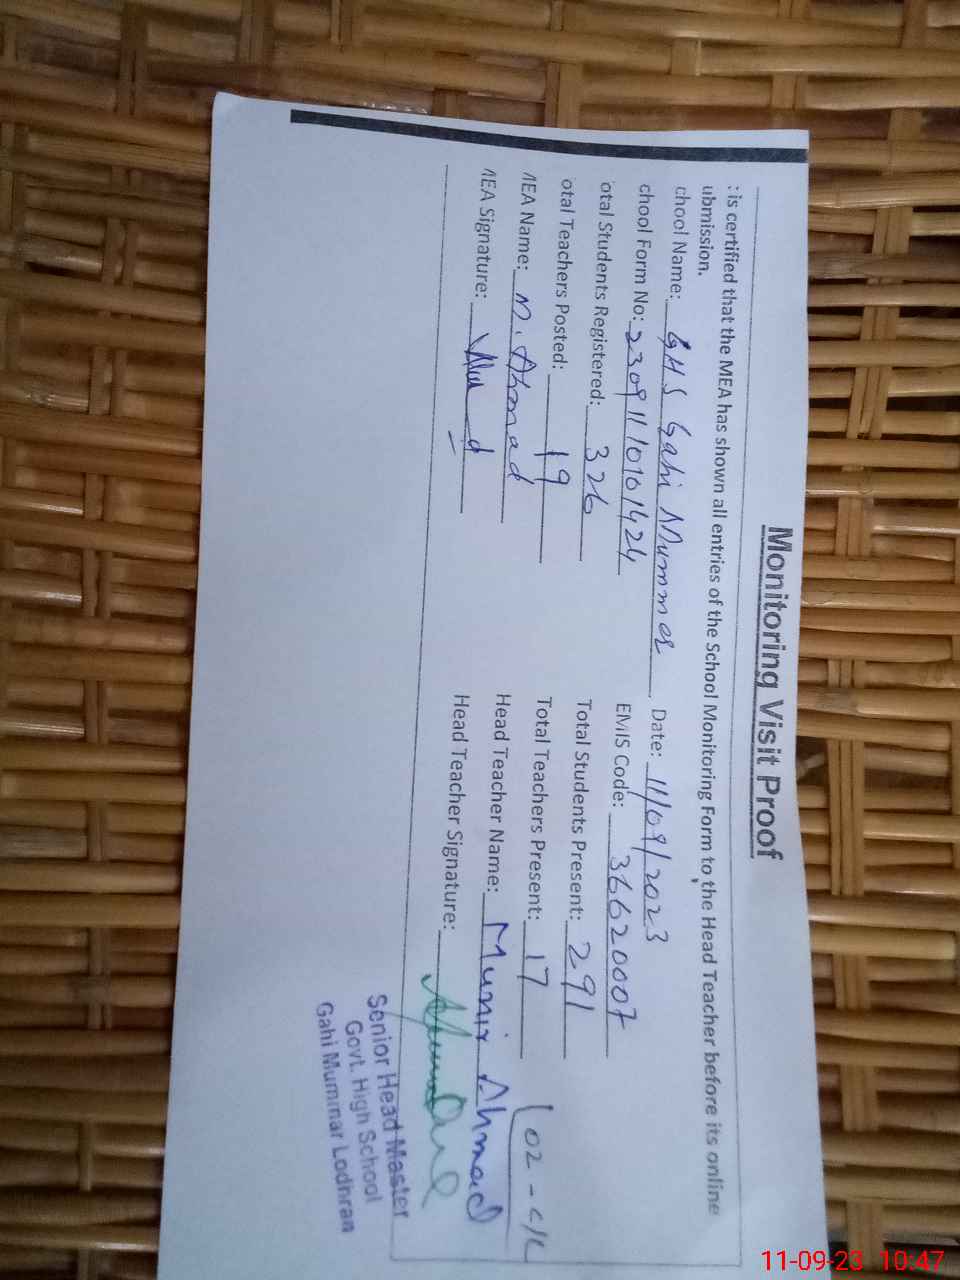 Monitoring Visit Proof
: is certified that the MEA has shown all entries of the School Monitoring Form to the Head Teacher before its online
ubmission.
chool Name: GHS Gahi Mummar Date: 11/09/2023
chool Form No: 23091110101424 EMIS Code: 36620007
otal Students Registered: 326 Total Students Present: 291
otal Teachers Posted: 19 Total Teachers Present: 17 02 - C/L
MEA Name: M. Ahmad Head Teacher Name: Munir Ahmad
MEA Signature: Head Teacher Signature:
Senior Head Master
Govt. High School
Gahi Mummar Lodhran
11-09-23 10:47